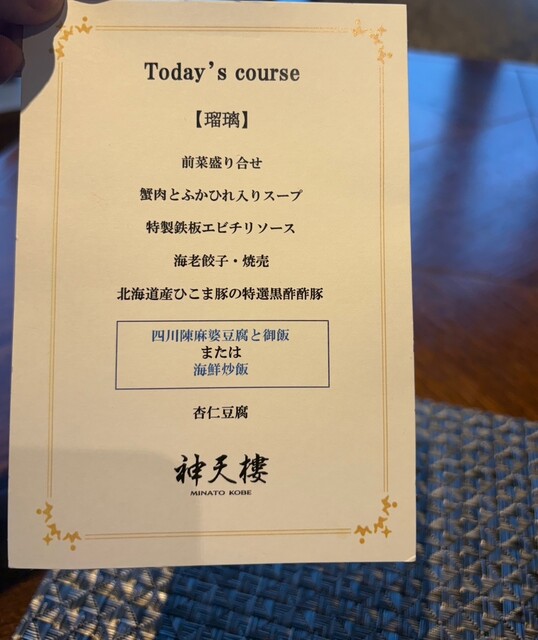 Today's course
【瑠璃】
前菜盛り合せ
蟹肉とふかひれ入りスープ
特製鉄板エビチリソース
海老餃子・焼売
北海道産ひこま豚の特選黒酢酢豚
四川陳麻婆豆腐と御飯
または
海鮮炒飯
杏仁豆腐
神天樓
MINATO KOBE